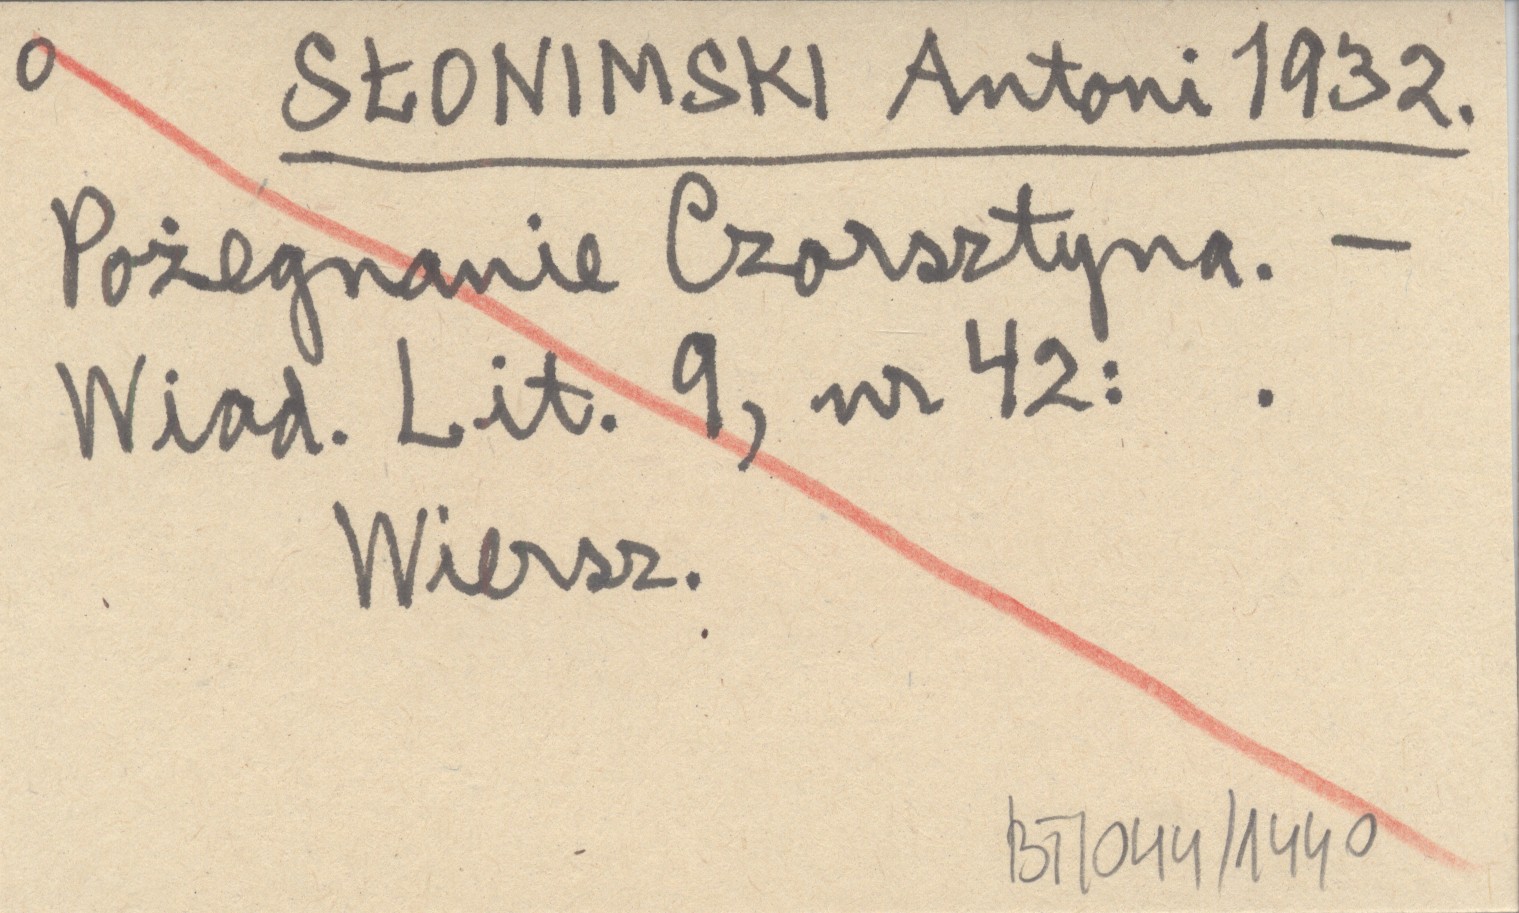 o SŁONIMSKI Antoni 1932.
Pożegnanie Czorsztyna. —
Wiad. Lit. 9, nr 42: .
Wiersz.
BT/044/1440